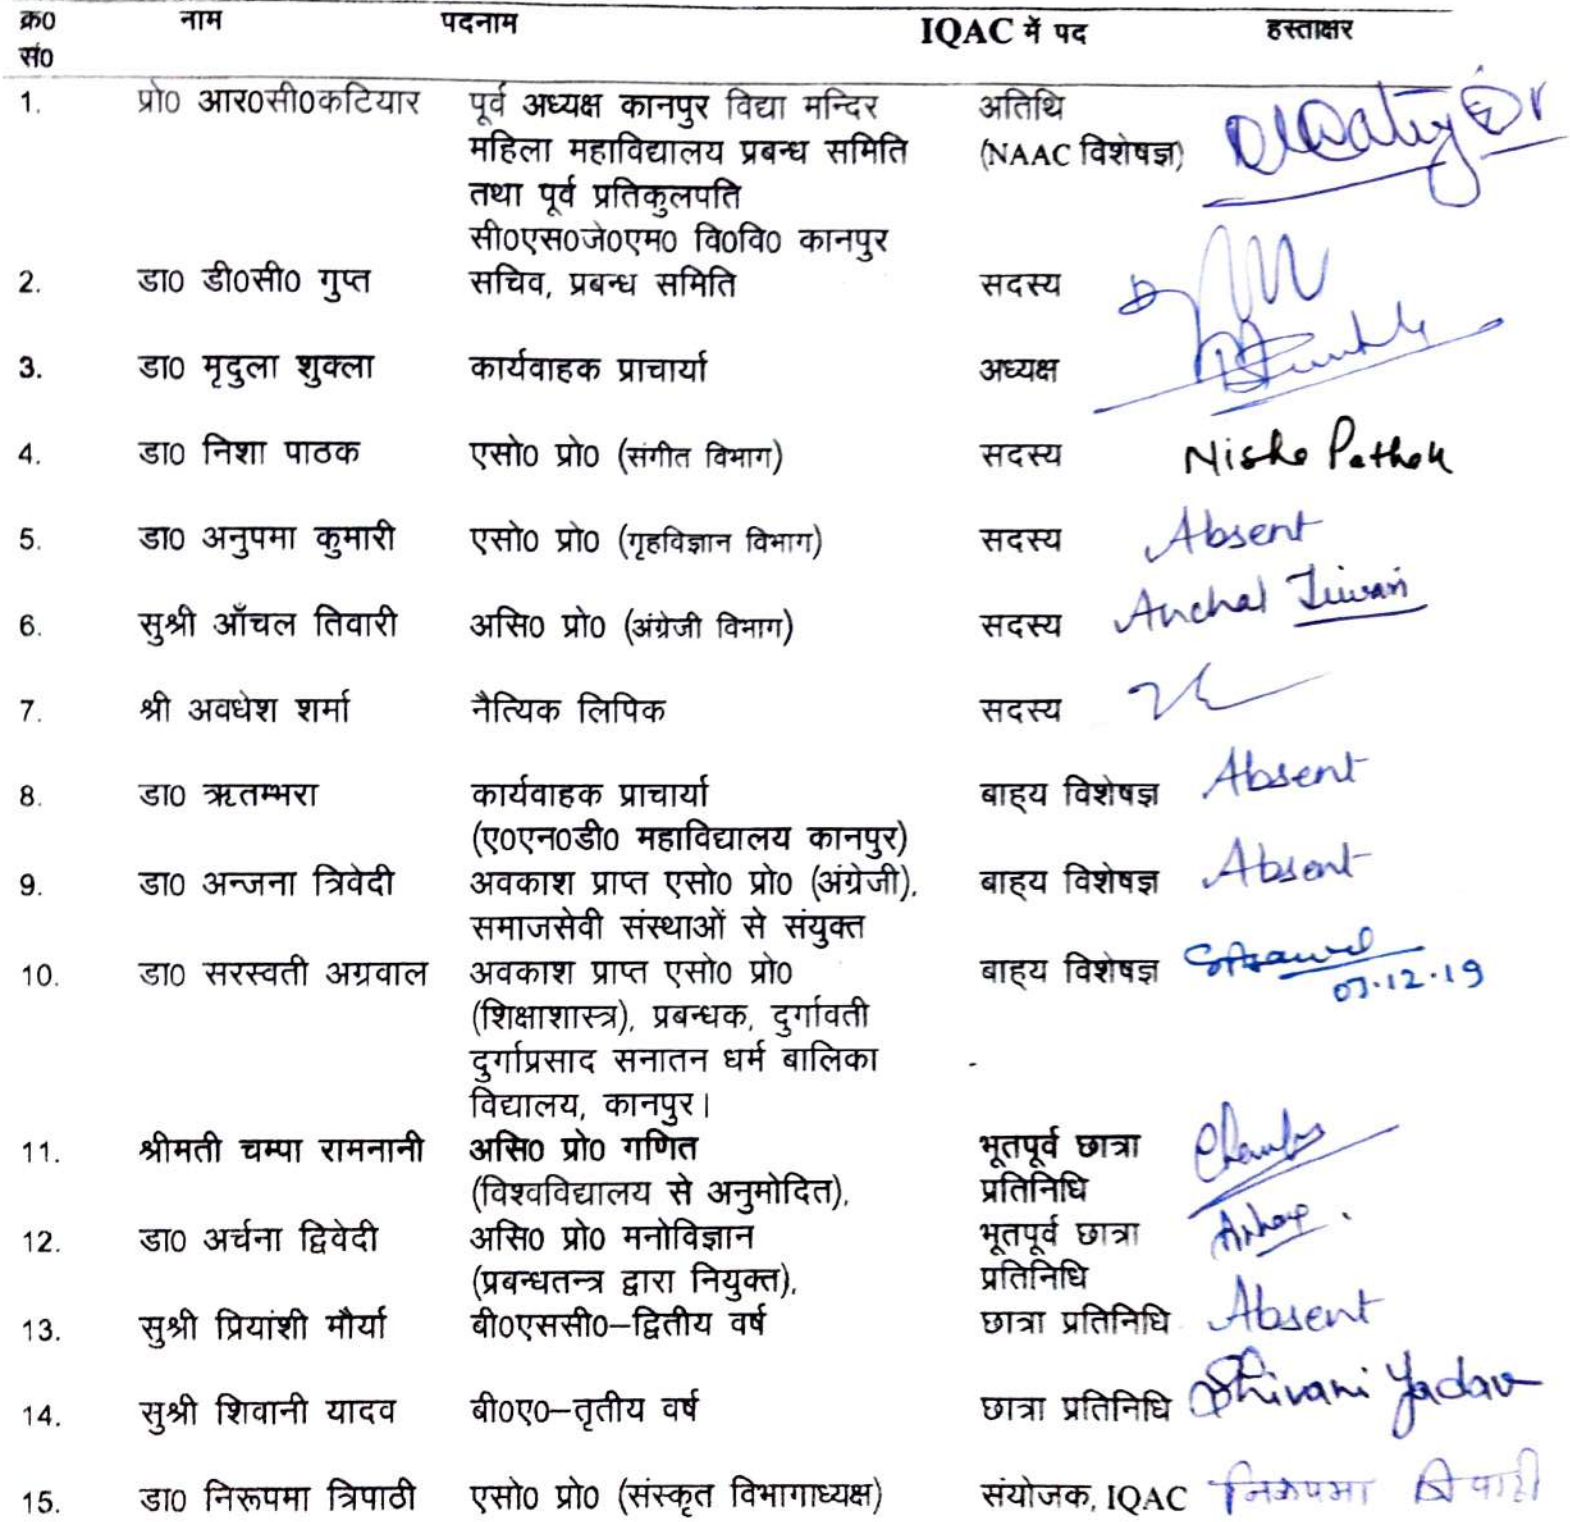 क्र0 नाम पदनाम IQAC में पद हस्ताक्षर
सं0
1. प्रो0 आर0सी0कटियार पूर्व अध्यक्ष कानपुर विद्या मन्दिर अतिथि
महिला महाविद्यालय प्रबन्ध समिति (NAAC विशेषज्ञ)
तथा पूर्व प्रतिकुलपति
सी0एस0जे0एम0 वि0वि0 कानपुर
2. डा0 डी0सी0 गुप्त सचिव, प्रबन्ध समिति सदस्य
3. डा0 मृदुला शुक्ला कार्यवाहक प्राचार्या अध्यक्ष
4. डा0 निशा पाठक एसो0 प्रो0 (संगीत विभाग) सदस्य Nisha Pathak
5. डा0 अनुपमा कुमारी एसो0 प्रो0 (गृहविज्ञान विभाग) सदस्य Absent
6. सुश्री आँचल तिवारी असि0 प्रो0 (अंग्रेजी विभाग) सदस्य Anchal Tiwari
7. श्री अवधेश शर्मा नैत्यिक लिपिक सदस्य
8. डा0 ऋतम्भरा कार्यवाहक प्राचार्या बाह्य विशेषज्ञ Absent
(ए0एन0डी0 महाविद्यालय कानपुर)
9. डा0 अन्जना त्रिवेदी अवकाश प्राप्त एसो0 प्रो0 (अंग्रेजी), बाह्य विशेषज्ञ Absent
समाजसेवी संस्थाओं से संयुक्त
10. डा0 सरस्वती अग्रवाल अवकाश प्राप्त एसो0 प्रो0 बाह्य विशेषज्ञ
(शिक्षाशास्त्र), प्रबन्धक, दुर्गावती
दुर्गाप्रसाद सनातन धर्म बालिका
विद्यालय, कानपुर।
11. श्रीमती चम्पा रामनानी असि0 प्रो0 गणित भूतपूर्व छात्रा
(विश्वविद्यालय से अनुमोदित), प्रतिनिधि
12. डा0 अर्चना द्विवेदी असि0 प्रो0 मनोविज्ञान भूतपूर्व छात्रा
(प्रबन्धतन्त्र द्वारा नियुक्त), प्रतिनिधि
13. सुश्री प्रियांशी मौर्या बी0एससी0–द्वितीय वर्ष छात्रा प्रतिनिधि Absent
14. सुश्री शिवानी यादव बी0ए0–तृतीय वर्ष छात्रा प्रतिनिधि Shivani Yadav
15. डा0 निरूपमा त्रिपाठी एसो0 प्रो0 (संस्कृत विभागाध्यक्ष) संयोजक, IQAC निरूपमा त्रिपाठी